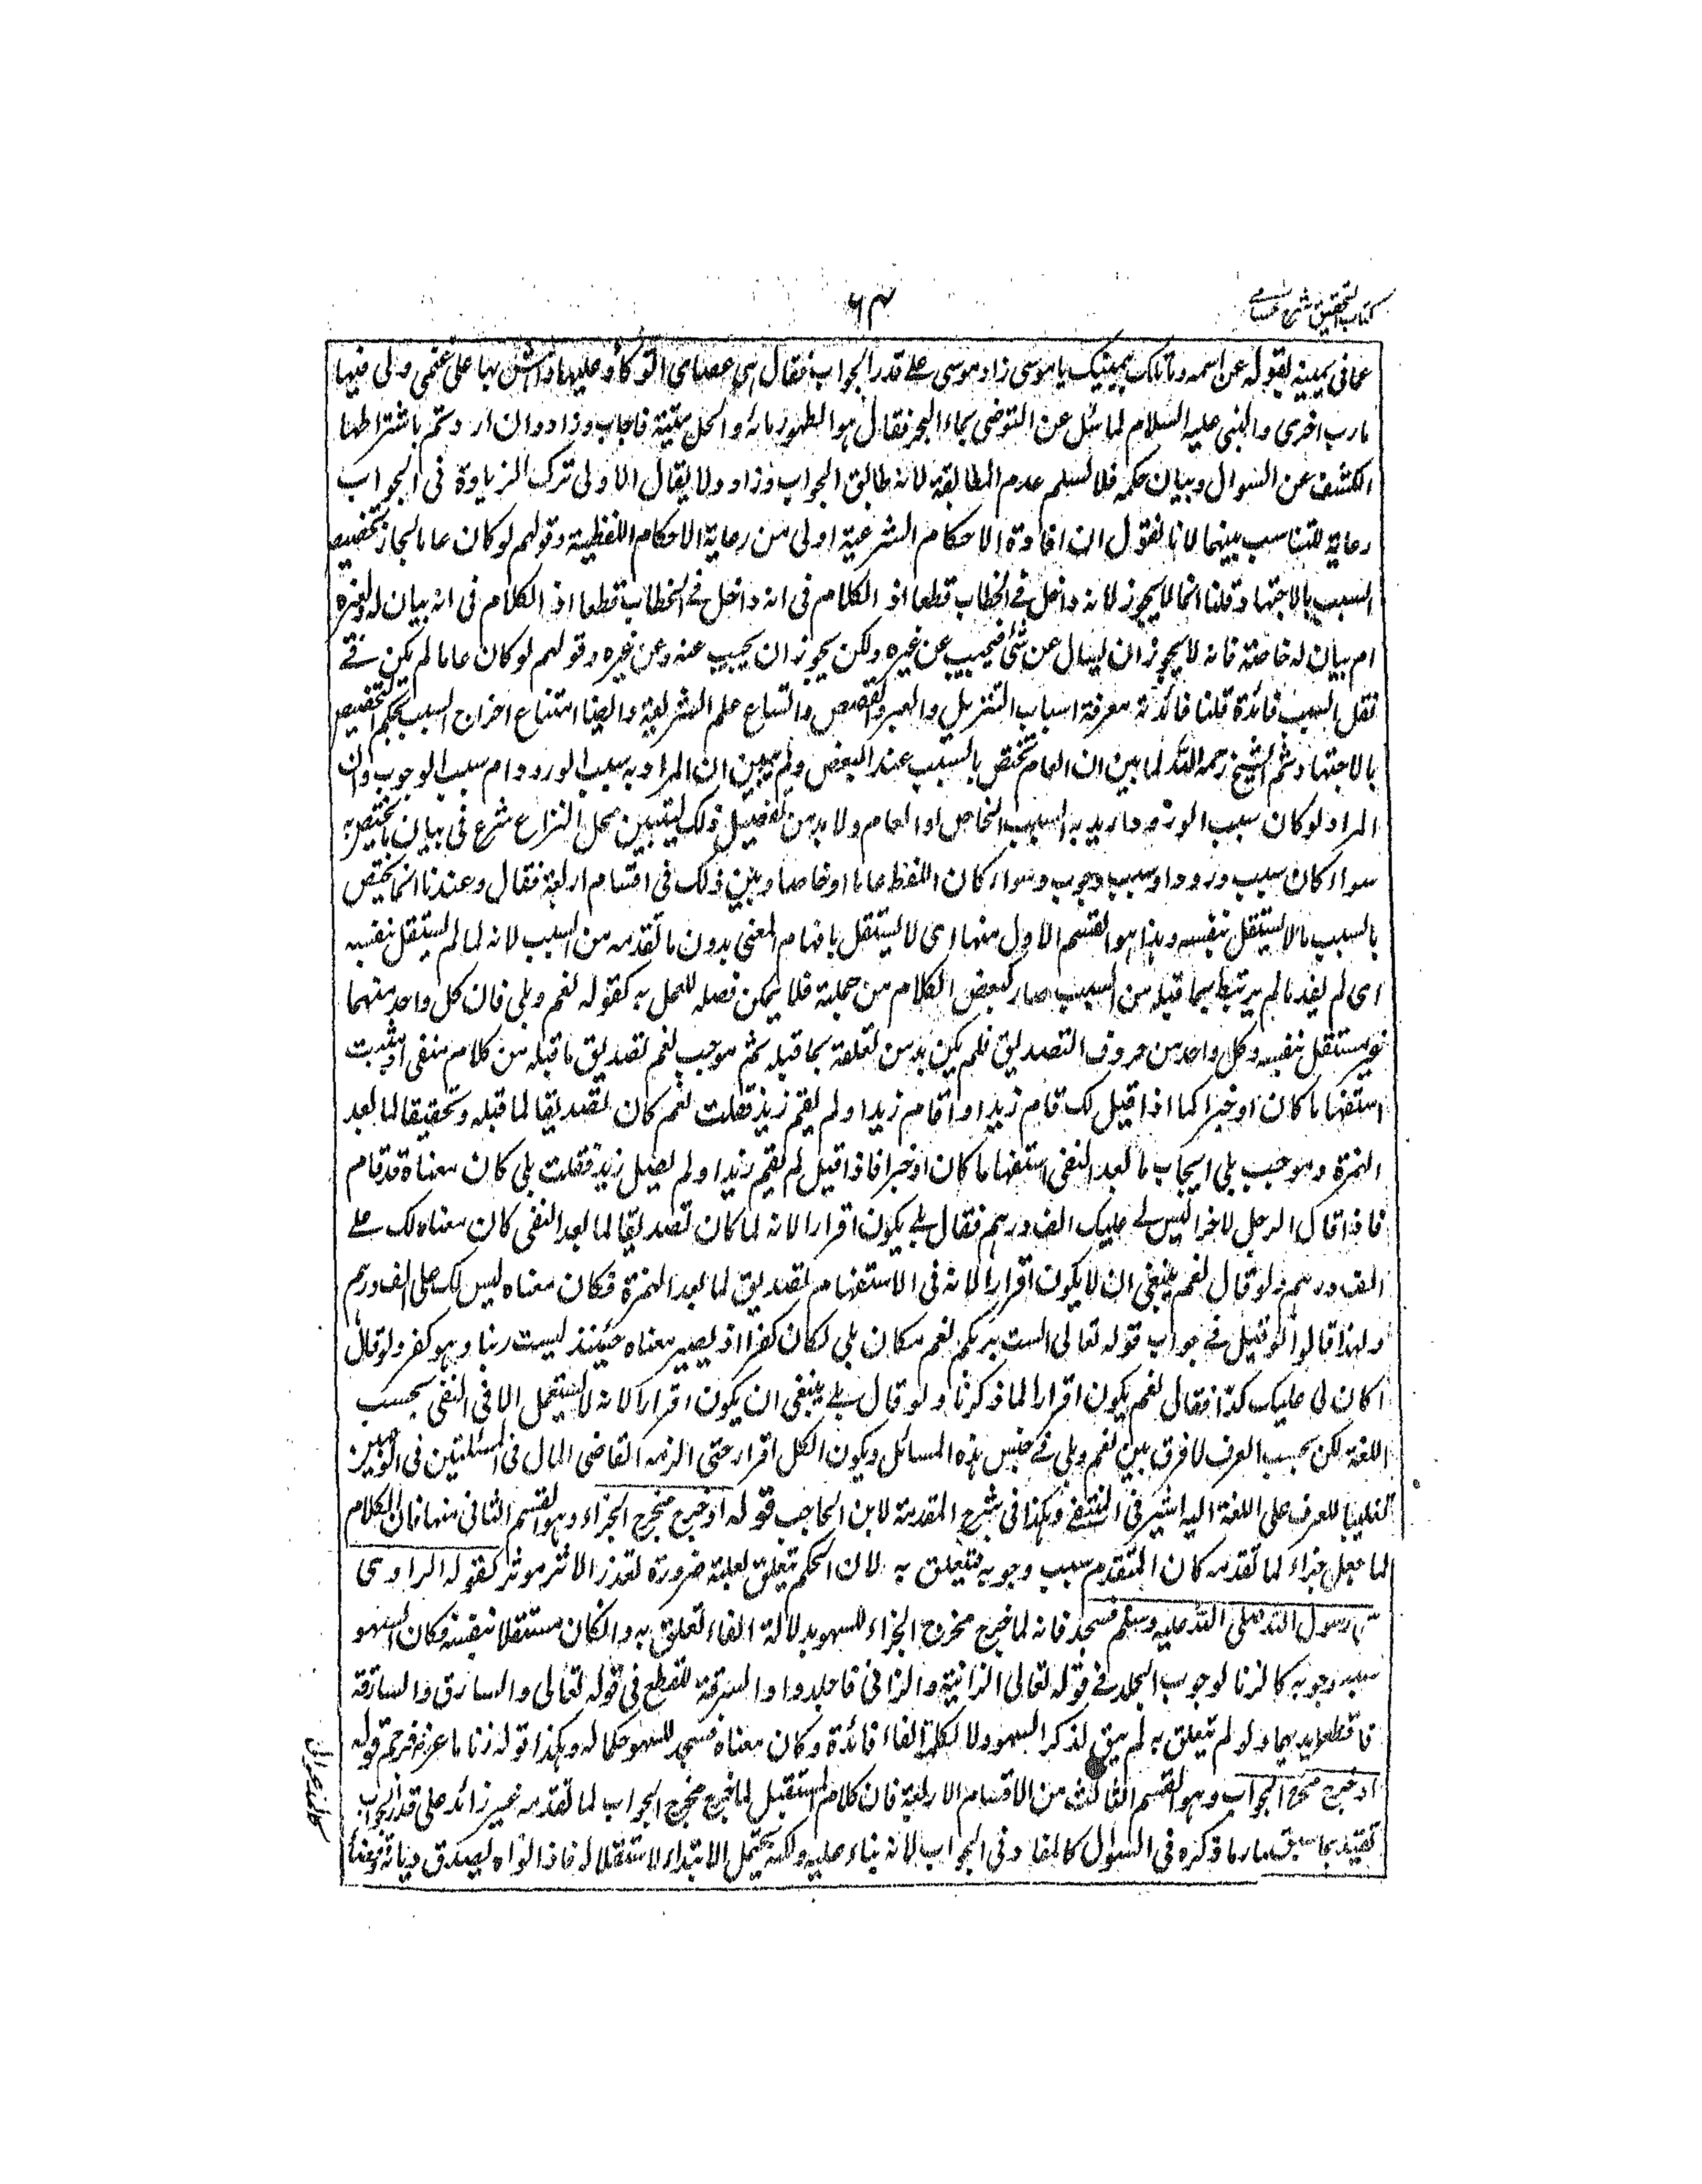 كتاب التحقيق شرح حسامى
٦٣
عما فى يمينه بقوله عن اسمه وما تلك بيمينك ياموسى زاد موسى على قدر الجواب فقال هى عصاى اتوكأ عليها واهش بها على غنمى ولى فيها
مارب اخرى والنبى عليه السلام لما سئل عن التوضى بماء البحر فقال هو الطهور ماؤه والحل ميتته فاجاب وزاد وان اردتم باشتراطها
الكشف عن السوال وبيان حكمه فلا نسلم عدم المطابقة لانه طابق الجواب وزاد ولا يقال الاولى ترك الزيادة فى الجواب
رعاية للتناسب بينهما لانا نقول ان افادة الاحكام الشرعية اولى من رعاية الاحكام اللفظية وقولهم لو كان عاما لجاز تخصيص
السبب بالاجتهاد قلنا انما لا يجوز لانه داخل فى الخطاب قطعا اذ الكلام فى انه داخل فى الخطاب قطعا اذ الكلام فى انه بيان له ولغيره
ام بيان له خاصة فانه لا يجوز ان يسال عن شئ فيجيب عن غيره ولكن يجوز ان يجيب عنه وعن غيره وقولهم لو كان عاما لم يكن فى
نقل السبب فائدة قلنا فائدته معرفة اسباب التنزيل والسير والقصص واتساع علم الشريعة وايضا امتناع اخراج السبب بحكم التخصيص
بالاجتهاد ثم الشيخ رحمه الله لما بين ان العام تختص بالسبب عند البعض ولم يبين ان المراد به سبب الورود ام سبب الوجوب وان
المراد لو كان سبب الورود ما يريد به السبب الخاص او العام ولا بد من تفصيل ذلك ليتبين محل النزاع شرع فى بيان ما يختص به
سواء كان سبب ورود او سبب وجوب وسواء كان اللفظ عاما او خاصا وبين ذلك فى اقسام اربعة فقال وعندنا انما يختص
بالسبب ما لا يستقل بنفسه وهذا هو القسم الاول منها اى لا يستقل بافهام المعنى بدون ما تقدمه من السبب لانه لما لم يستقل بنفسه
اى لم يفد ما لم يرتبط بما قبله من السبب صار كبعض الكلام من جملته فلا يمكن فصله للعمل به كقوله نعم وبلى فان كل واحد منهما
غير مستقل بنفسه وكل واحد من حروف التصديق فلم يكن بد من تعلقه بما قبله ثم موجب نعم تصديق ما قبله من كلام منفى او مثبت
استفهاما كان او خبرا كما اذا قيل لك قام زيد او اقام زيد او لم يقم زيد فقلت نعم كان تصديقا لما قبله وتحقيقا لما بعد
الهمزة وموجب بلى ايجاب ما بعد النفى استفهاما كان او خبرا فاذا قيل لم يقم زيد او لم يصل زيد فقلت بلى كان معناه قد قام
فاذا قال الرجل لاخر اليس لى عليك الف درهم فقال بلى يكون اقرارا لانه لما كان تصديقا لما بعد النفى كان معناه لك على
الف درهم ولو قال نعم ينبغى ان لا يكون اقرارا لانه فى الاستفهام تصديق لما بعد الهمزة فكان معناه ليس لك على الف درهم
ولهذا قالوا لو قيل فى جواب قوله تعالى الست بربكم نعم مكان بلى لكان كفرا اذ يصير معناه حينئذ ليست ربنا وهو كفر ولو قال
اكان لى عليك كذا فقال نعم يكون اقرارا لما ذكرنا ولو قال بلى ينبغى ان يكون اقرارا لانه لا يستعمل الا فى النفى بحسب
اللغة لكن بحسب العرف لا فرق بين نعم وبلى فى جنس هذه المسائل ويكون الكل اقرار حتى الزمه القاضى المال فى المسئلتين فى الوجهين
تغليبا للعرف على اللغة اليه اشير فى وهكذا فى شرح المقدمة لابن الحاجب قوله او خرج مخرج الجزاء وهو القسم الثانى منها فان الكلام
لما جعل جزاء لما تقدمه كان المتقدم سبب وجوبه فتعلق به لان الحكم تيعلق بعلته ضرورة لتعذر الاثر موثر كقوله الراوى
رسول الله صلى الله عليه وسلم فسجد فانه لما خرج مخرج الجزاء للسهو بدلالة الفاء تعلق به وانكان مستقلا بنفسه فكان السهو
سبب وجوبه كالزنا لوجوب الجلد فى قوله تعالى الزانية والزانى فاجلدوا والسرقة للقطع فى قوله تعالى والسارق والسارقة
فاقطعوا ايديهما ولو لم تيعلق به لم يبق لذكر السهو ولا لكلمة الفاء فائدة وكان معناه فسجد للسهو حكما له وهكذا قوله زنا ماعز فرجم قوله
او خرج مخرج الجواب وهو القسم الثالث من الاقسام الاربعة فان كلام المستقبل لما خرج مخرج الجواب لما تقدمه غير زائد على قدر الجواب
تقيد بما سبق صار ما ذكره فى السؤال كالمعاد فى الجواب لانه بناء عليه ولكنه يحتمل الابتداء لاستقلاله فاذا نواه يصدق ديانة